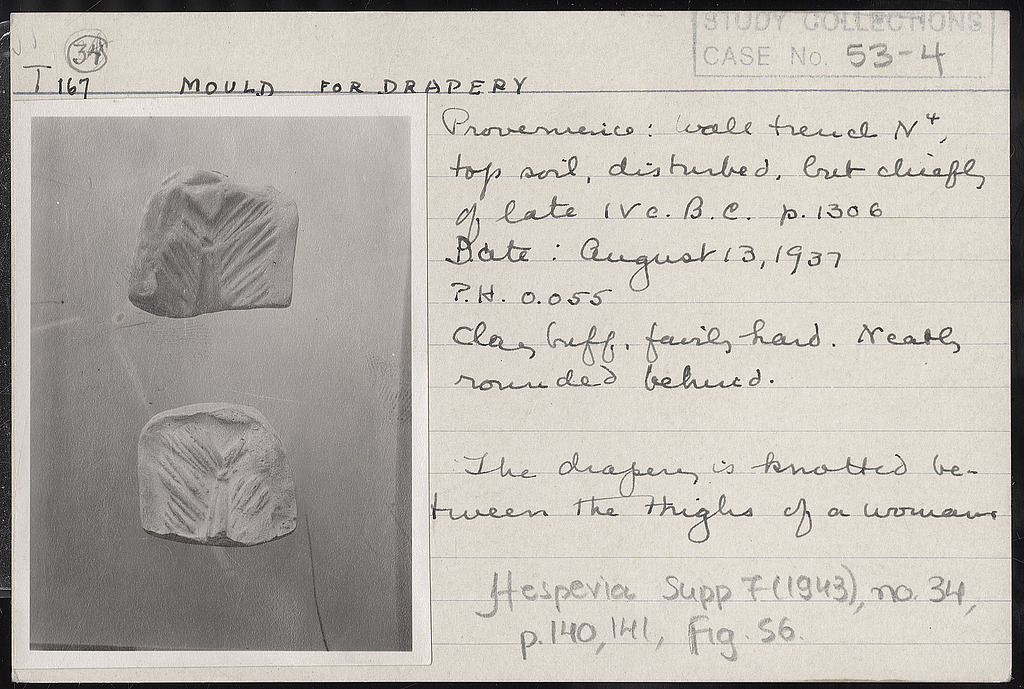 34
STUDY COLLECTIONS
CASE No. 53-4
T 167 MOULD FOR DRAPERY
Provenience: Wall trench N+,
top soil, disturbed, but chiefly
of late IV c. B.C. p. 1306
Date: August 13, 1937
P.H. 0.055
Clay buff, fairly hard. Neatly
rounded behind.
The drapery is knotted be-
tween the thighs of a woman
Hesperia Supp 7 (1943), no. 34,
p. 140, 141, Fig. 56.